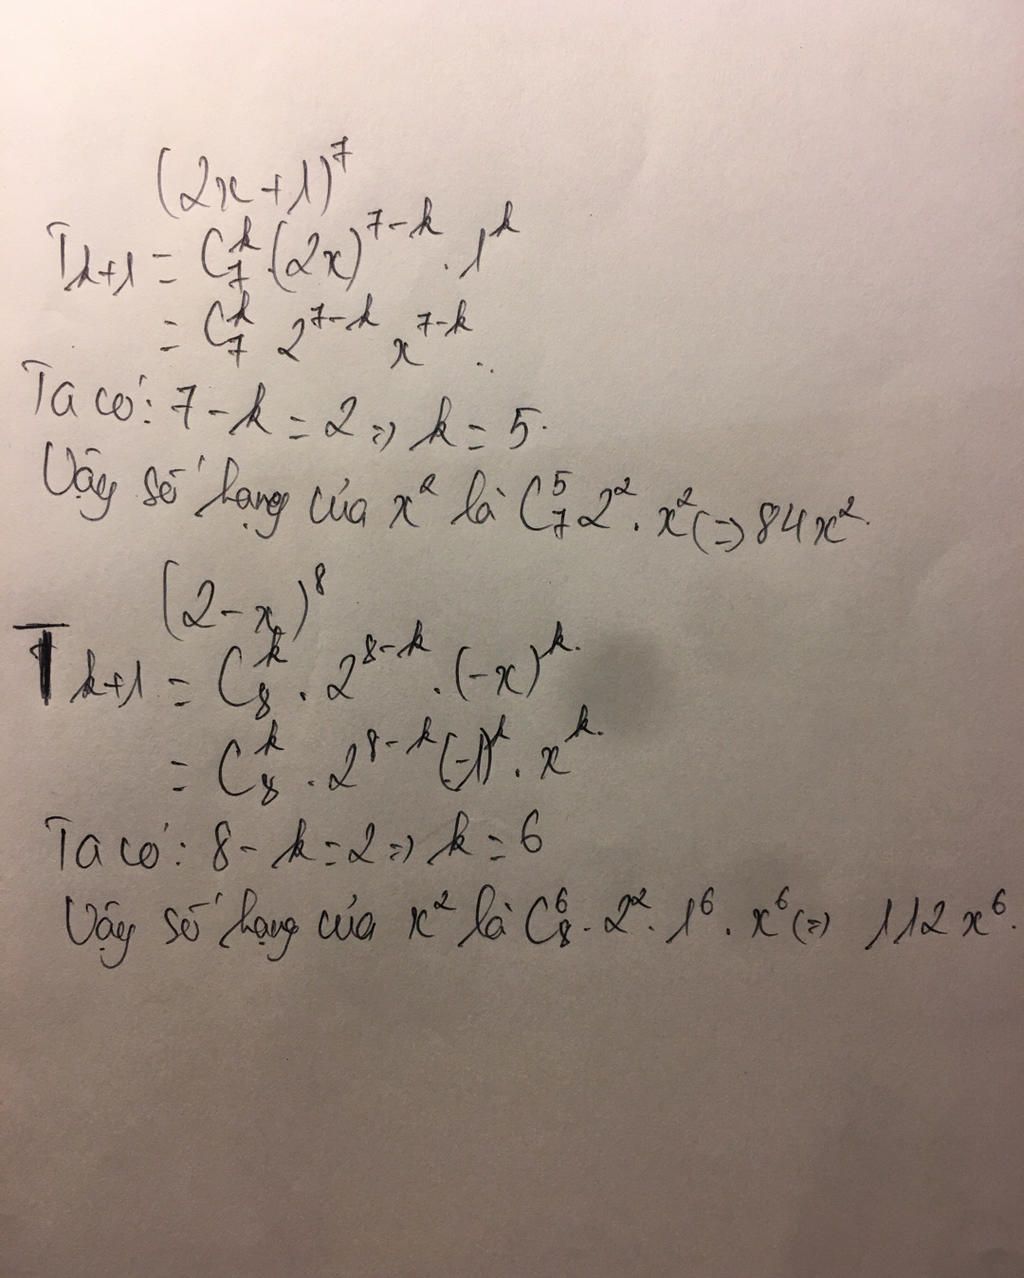 (2x+1)⁷
T_{k+1} = C₇ᵏ.(2x)^{7-k} . 1ᵏ
= C₇ᵏ 2^{7-k} x^{7-k}.
Ta có: 7-k=2 => k=5.
Vậy số hạng của x² là C₇⁵ 2² . x² (=> 84x².
(2-x)⁸
T_{k+1} = C₈ᵏ . 2^{8-k} . (-x)ᵏ.
= C₈ᵏ . 2^{8-k} (-1)ᵏ . xᵏ.
Ta có: 8-k=2 => k=6
Vậy số hạng của x² là C₈⁶ . 2² . 1⁶ . x⁶ (=> 112x⁶.